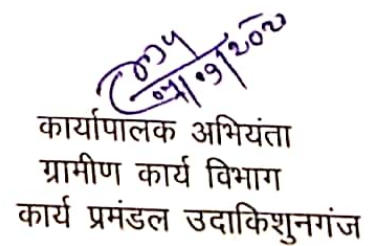 कार्यापालक अभियंता
ग्रामीण कार्य विभाग
कार्य प्रमंडल उदाकिशुनगंज